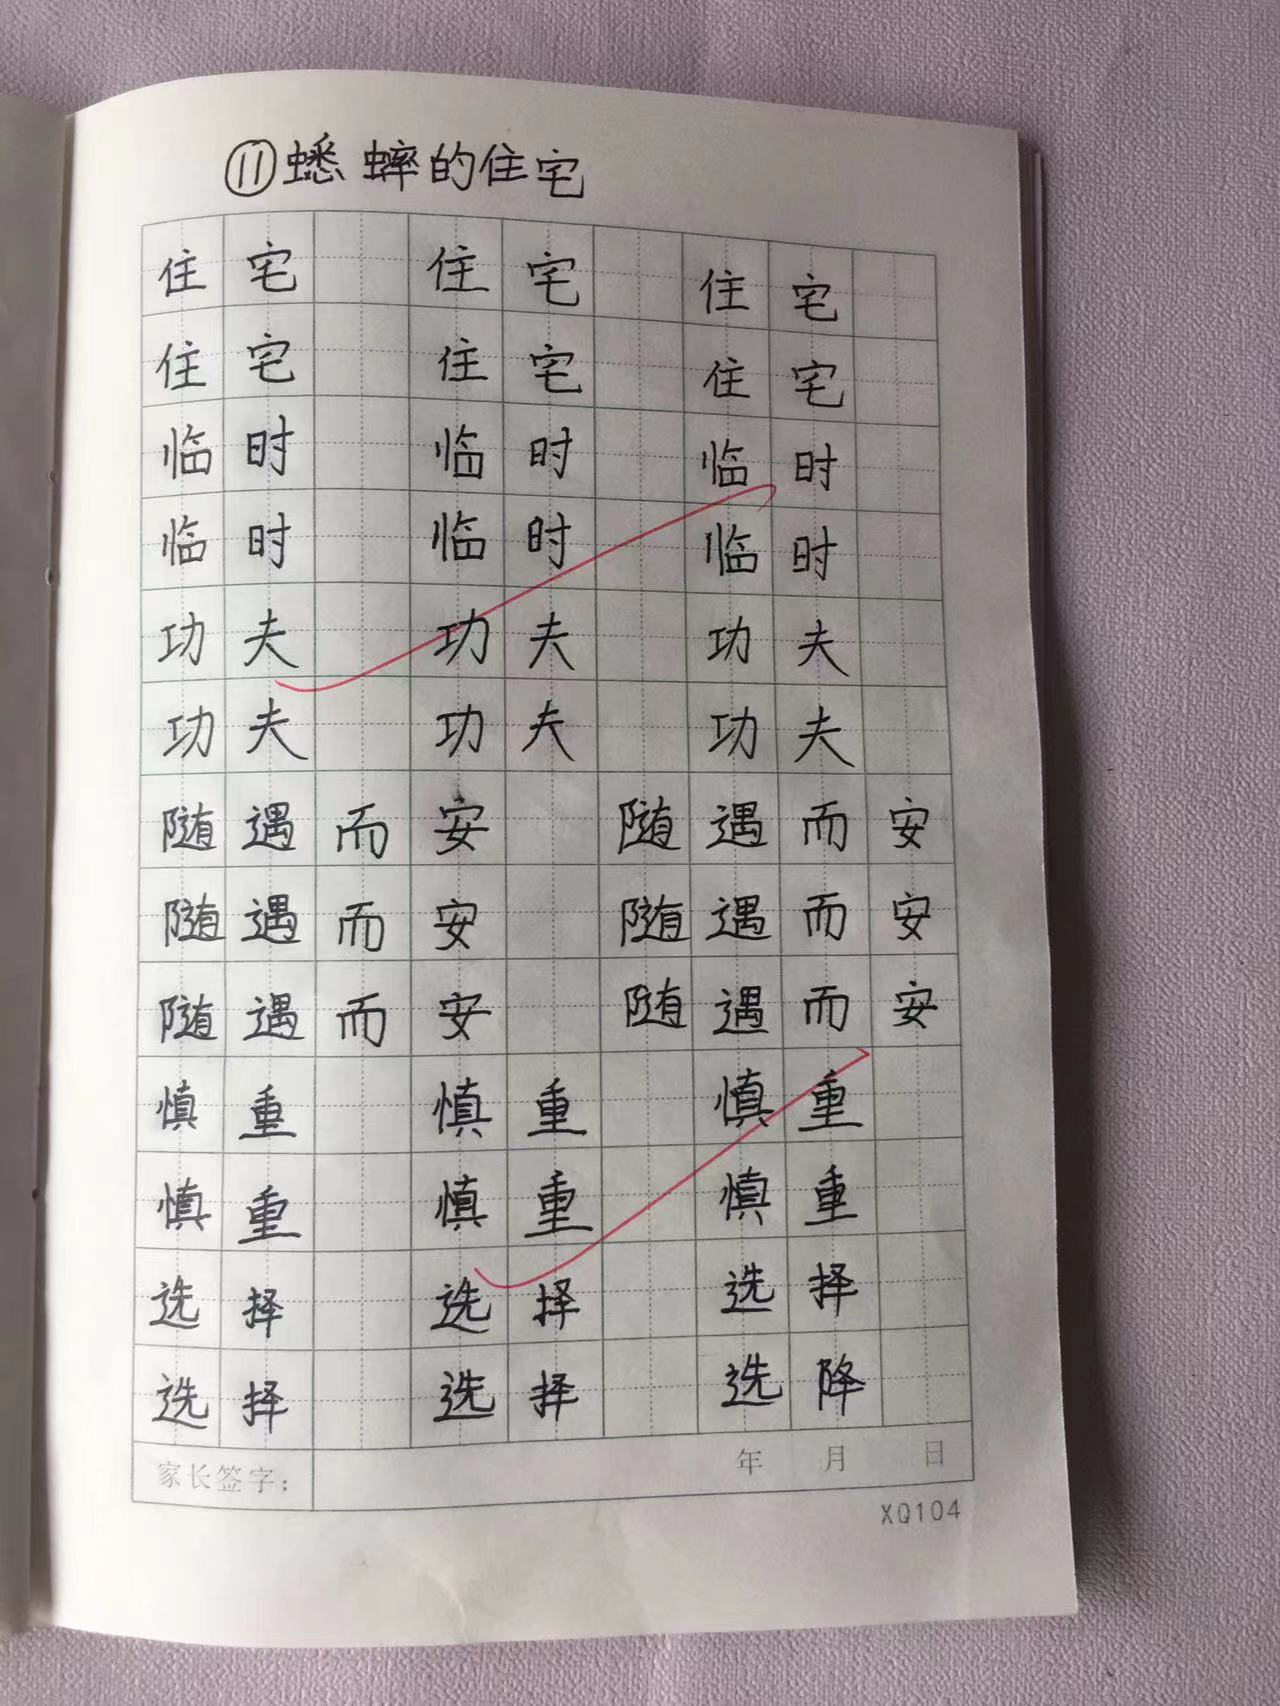 ⑪蟋蟀的住宅
住宅 住宅 住宅
住宅 住宅 住宅
临时 临时 临时
临时 临时 临时
功夫 功夫 功夫
功夫 功夫 功夫
随遇而安 随遇而安
随遇而安 随遇而安
随遇而安 随遇而安
慎重 慎重 慎重
慎重 慎重 慎重
选择 选择 选择
选择 选择 选降
家长签字： 年 月 日
XQ104